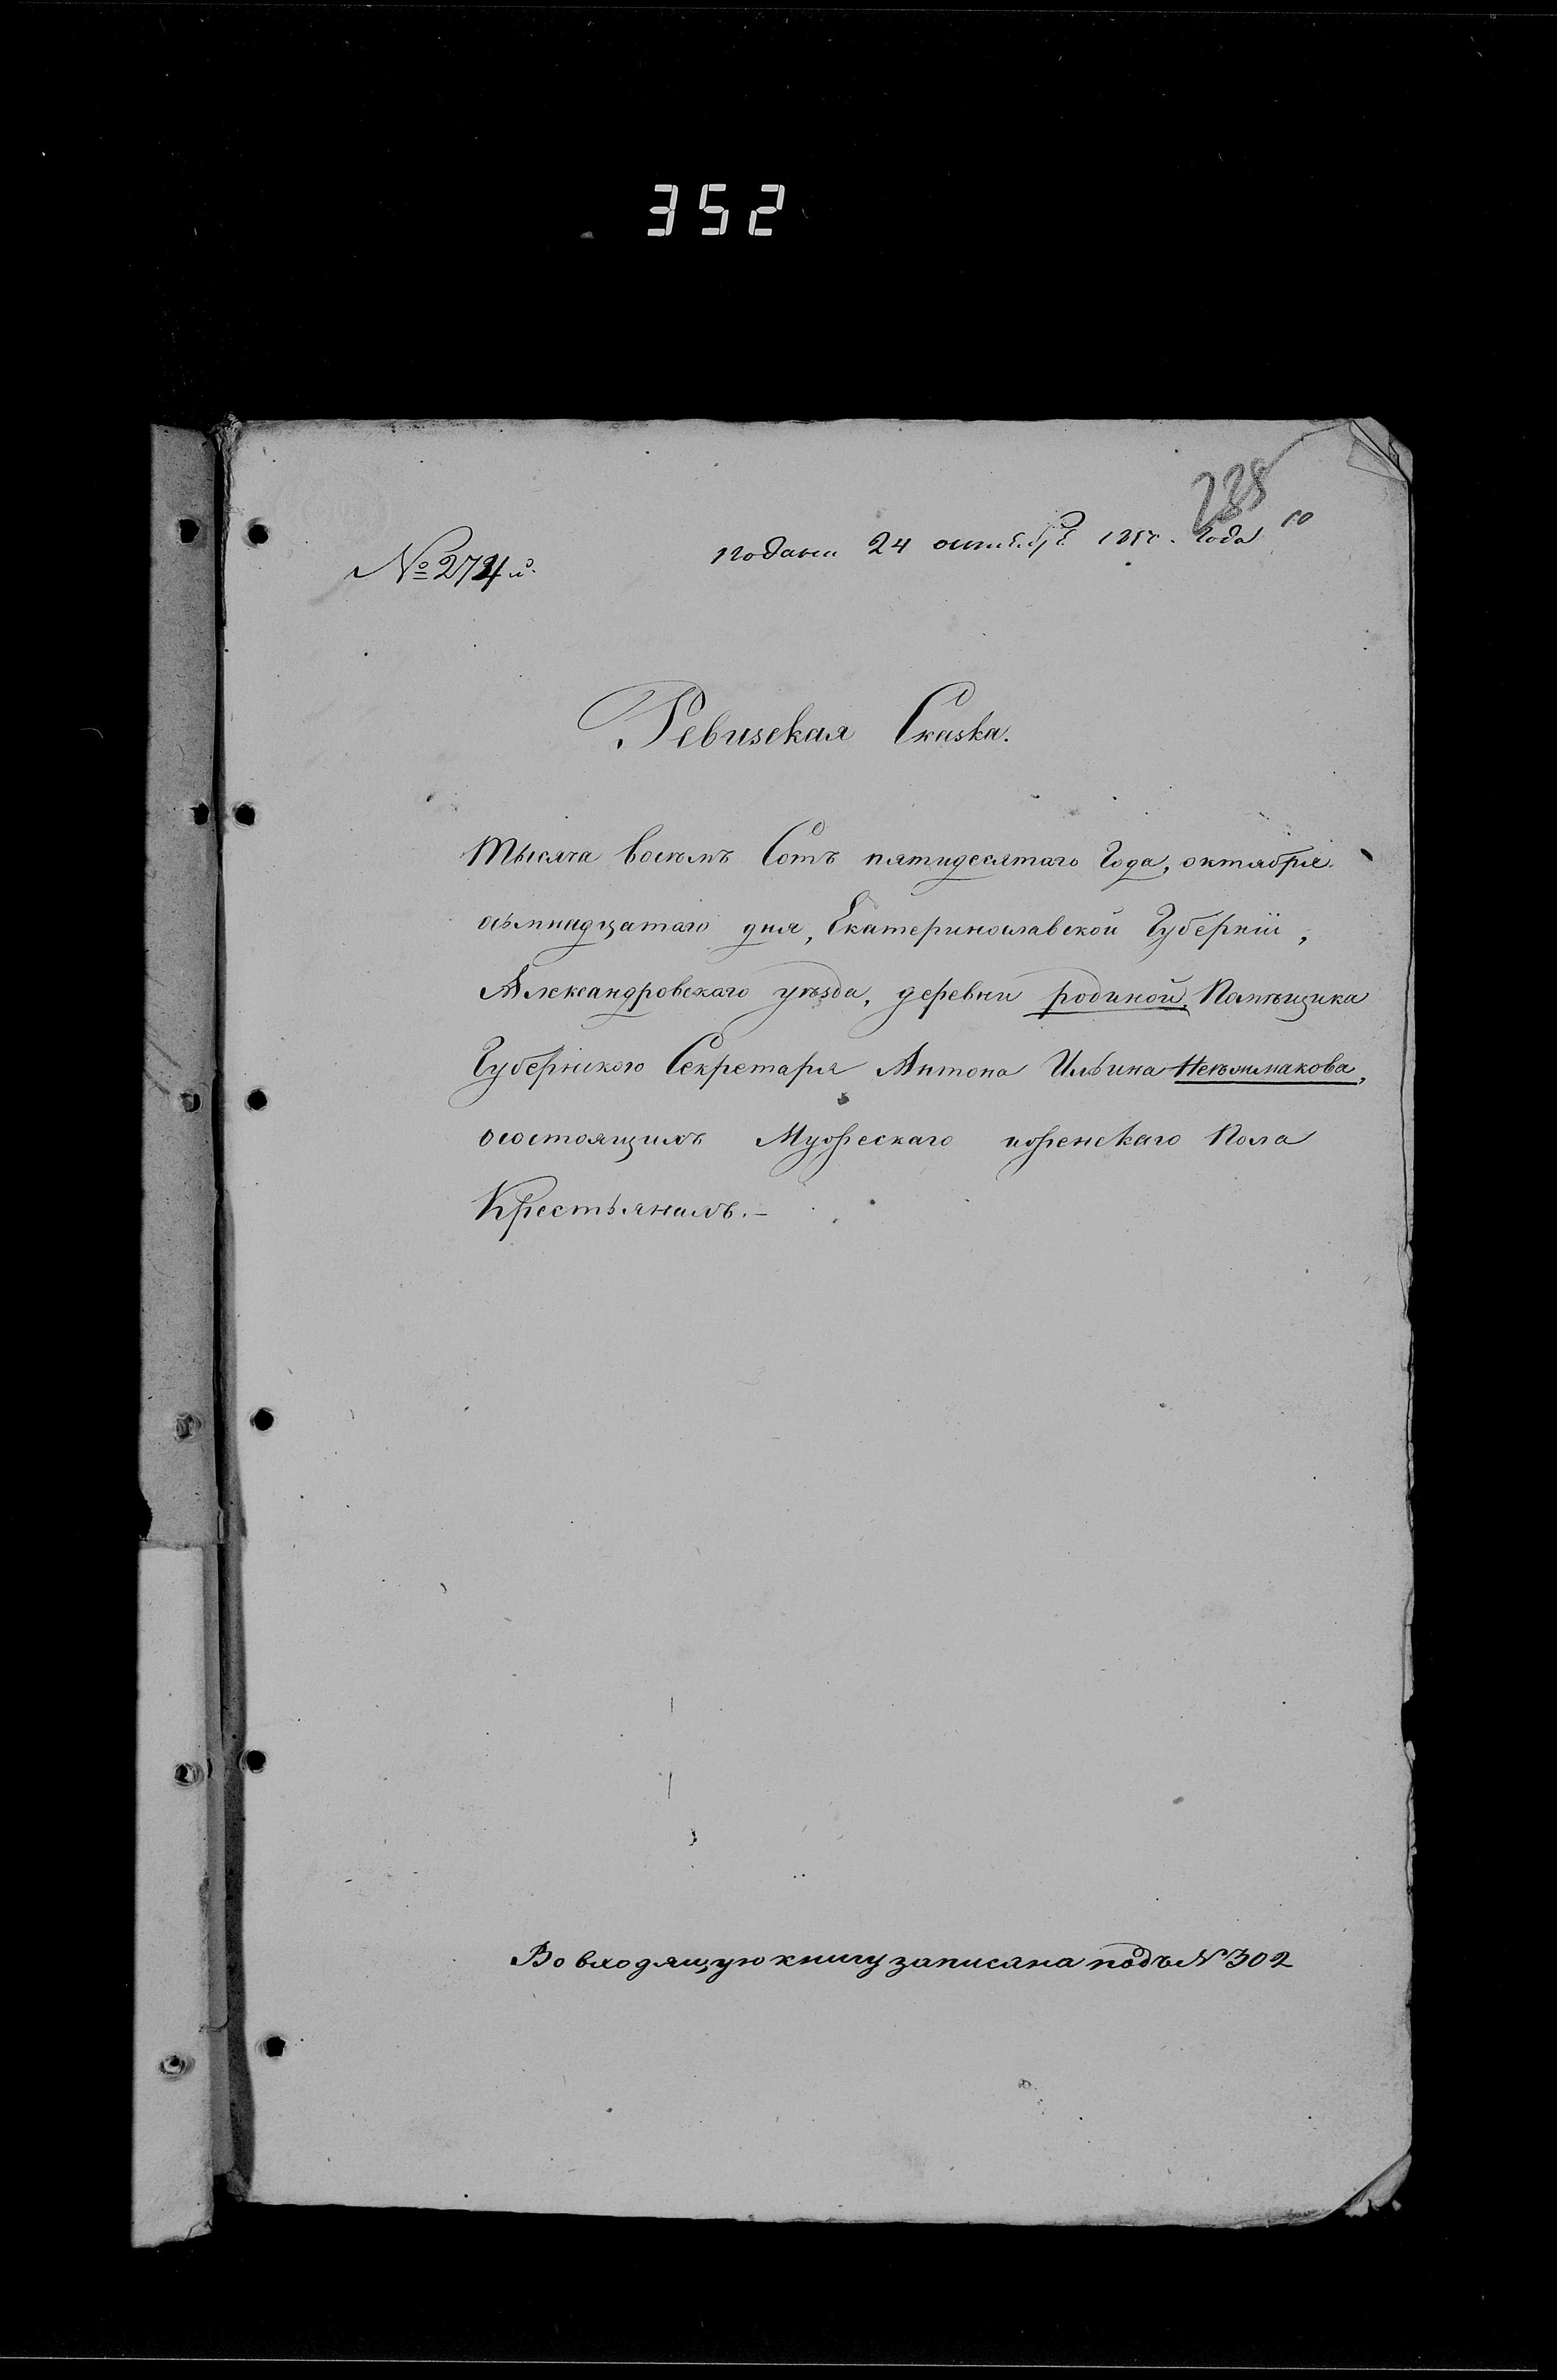 352
238
10
№ 274й.
подана 24 октября 1850. Года
Ревизская Сказка.
Тысяча восемъ Сотъ пятидесятаго Года, октября
осьмнадцатаго дня, Екатеринославской Губерніи,
Александровскаго уѣзда, деревни родиной, Помѣщика
Губернского Секретаря Антона Ильина
осостоящихъ Мужескаго иженскаго Пола
Крестьянахъ.-
Во входящую книгу записана подъ № 302